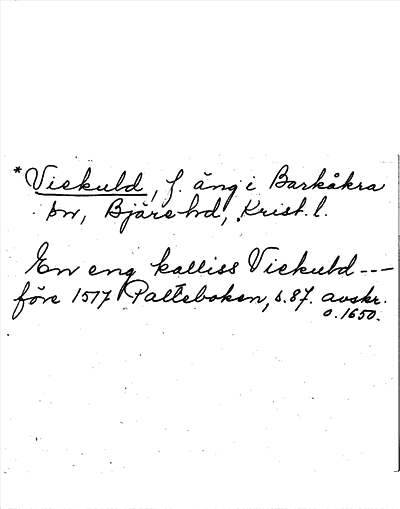 * Viekuld, f. äng i Barkåkra
sn, Bjäre hd, Krist. l.
En eng kalliss Viekuld ---
före 1517 Palteboken, s. 87. avskr.
o. 1650.